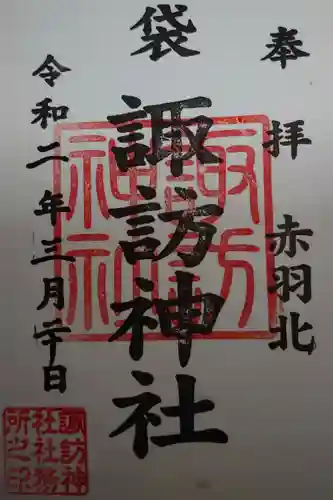 奉拝 赤羽北
袋
諏訪神社
令和二年三月二十日
諏訪神社
諏訪神
社社務
所之印